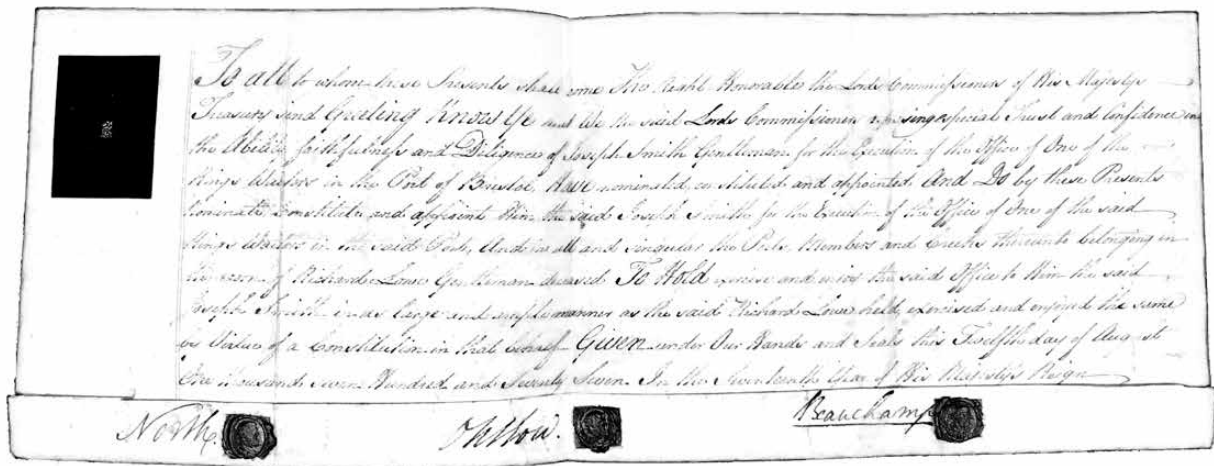 To all to whom these Presents shall come The Right Honorable the Lords Commissioners of His Majestys
Treasury send Greeting Know Ye that We the said Lords Commissioners reposing special Trust and Confidence in
the Ability faithfulness and Diligence of Joseph Smith Gentleman for the Execution of the Office of One of the
Kings Waiters in the Port of Bristol, Have nominated, constituted and appointed, And Do by these Presents
Nominate, Constitute and appoint Him the said Joseph Smith for the Execution of the Office of One of the said
Kings Waiters in the said Port, And in all and singular the Ports, Members and Creeks thereunto belonging in
the room of Richard Lowe Gentleman deceased To Hold exercise and enjoy the said Office to Him the said
Joseph Smith in as large and ample manner as the said Richard Lowe held, exercised and enjoyed the same
by Virtue of a Constitution in that behalf Given under Our Hands and Seals this Twelfth day of August
One thousand Seven Hundred and Seventy Seven. In the Seventeenth Year of His Majestys Reign
North. Onslow. Beauchamp